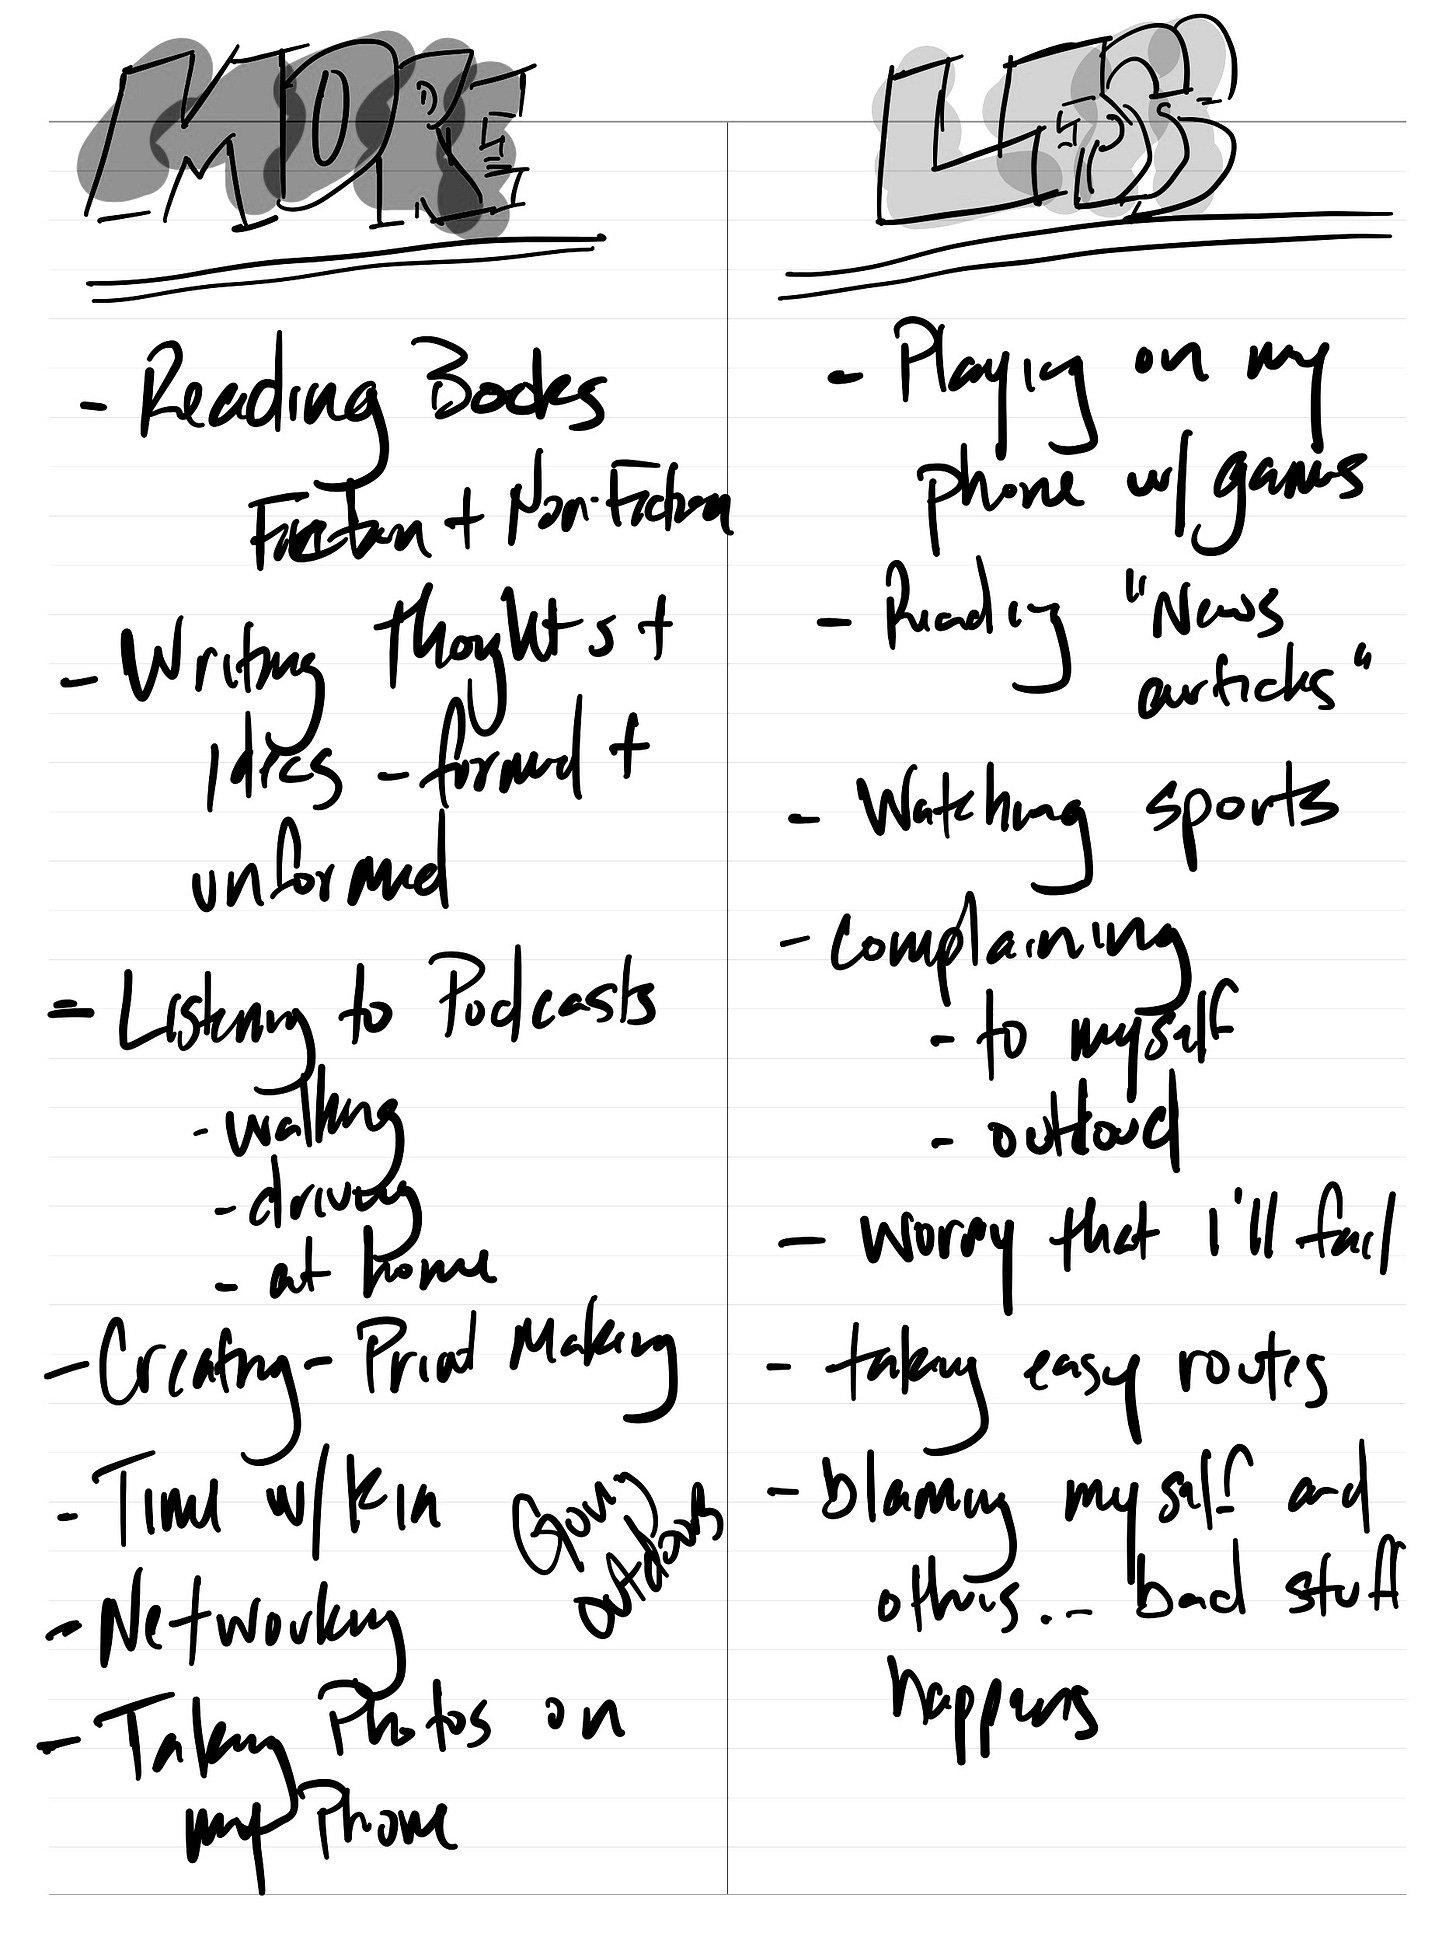 MORE
- Reading Books
Fiction + Non-Fiction
- Writing thoughts +
Ideas - formed +
unformed
- Listening to Podcasts
- walking
- driving
- at home
- Creating - Print Making
- Time w/ Kin
Going
outdoors
- Networking
- Taking Photos on
my Phone
LESS
- Playing on my
phone w/ games
- Reading "News
articles"
- Watching sports
- complaining
- to myself
- outloud
- worry that I'll fail
- taking easy routes
- blaming myself and
others... bad stuff
happens